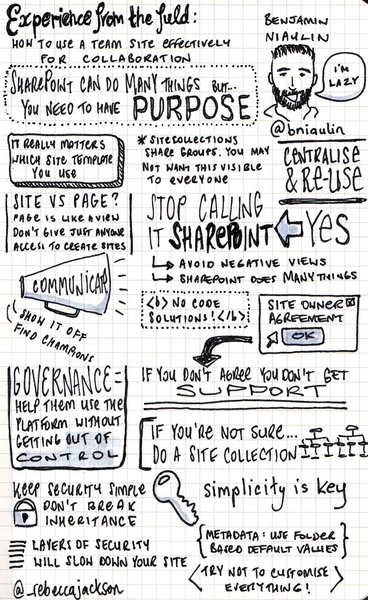 Experience from the field:
HOW TO USE A TEAM SITE EFFECTIVELY
FOR COLLABORATION
BENJAMIN
NIAULIN
I'M
LAZY
@bniaulin
SHAREPOINT CAN DO MANY THINGS BUT...
YOU NEED TO HAVE PURPOSE
IT REALLY MATTERS
WHICH SITE TEMPLATE
YOU USE
* SITECOLLECTIONS
SHARE GROUPS. YOU MAY
NOT WANT THIS VISIBLE
TO EVERYONE
CENTRALISE
& RE-USE
SITE VS PAGE?
PAGE IS LIKE A VIEW
DON'T GIVE JUST ANYONE
ACCESS TO CREATE SITES
STOP CALLING
IT SHAREPOINT
YES
AVOID NEGATIVE VIEWS
SHAREPOINT DOES MANY THINGS
COMMUNICATE
SHOW IT OFF
FIND CHAMPIONS
<b> NO CODE
SOLUTIONS! </b>
SITE OWNER
AGREEMENT
OK
IF YOU DON'T AGREE YOU DON'T GET
SUPPORT
GOVERNANCE =
HELP THEM USE THE
PLATFORM WITHOUT
GETTING OUT OF
CONTROL
IF YOU'RE NOT SURE...
DO A SITE COLLECTION
KEEP SECURITY SIMPLE
DON'T BREAK
INHERITANCE
simplicity is key
LAYERS OF SECURITY
WILL SLOW DOWN YOUR SITE
{METADATA: USE FOLDER
BASED DEFAULT VALUES}
<TRY NOT TO CUSTOMISE
EVERYTHING!>
@_rebeccajackson